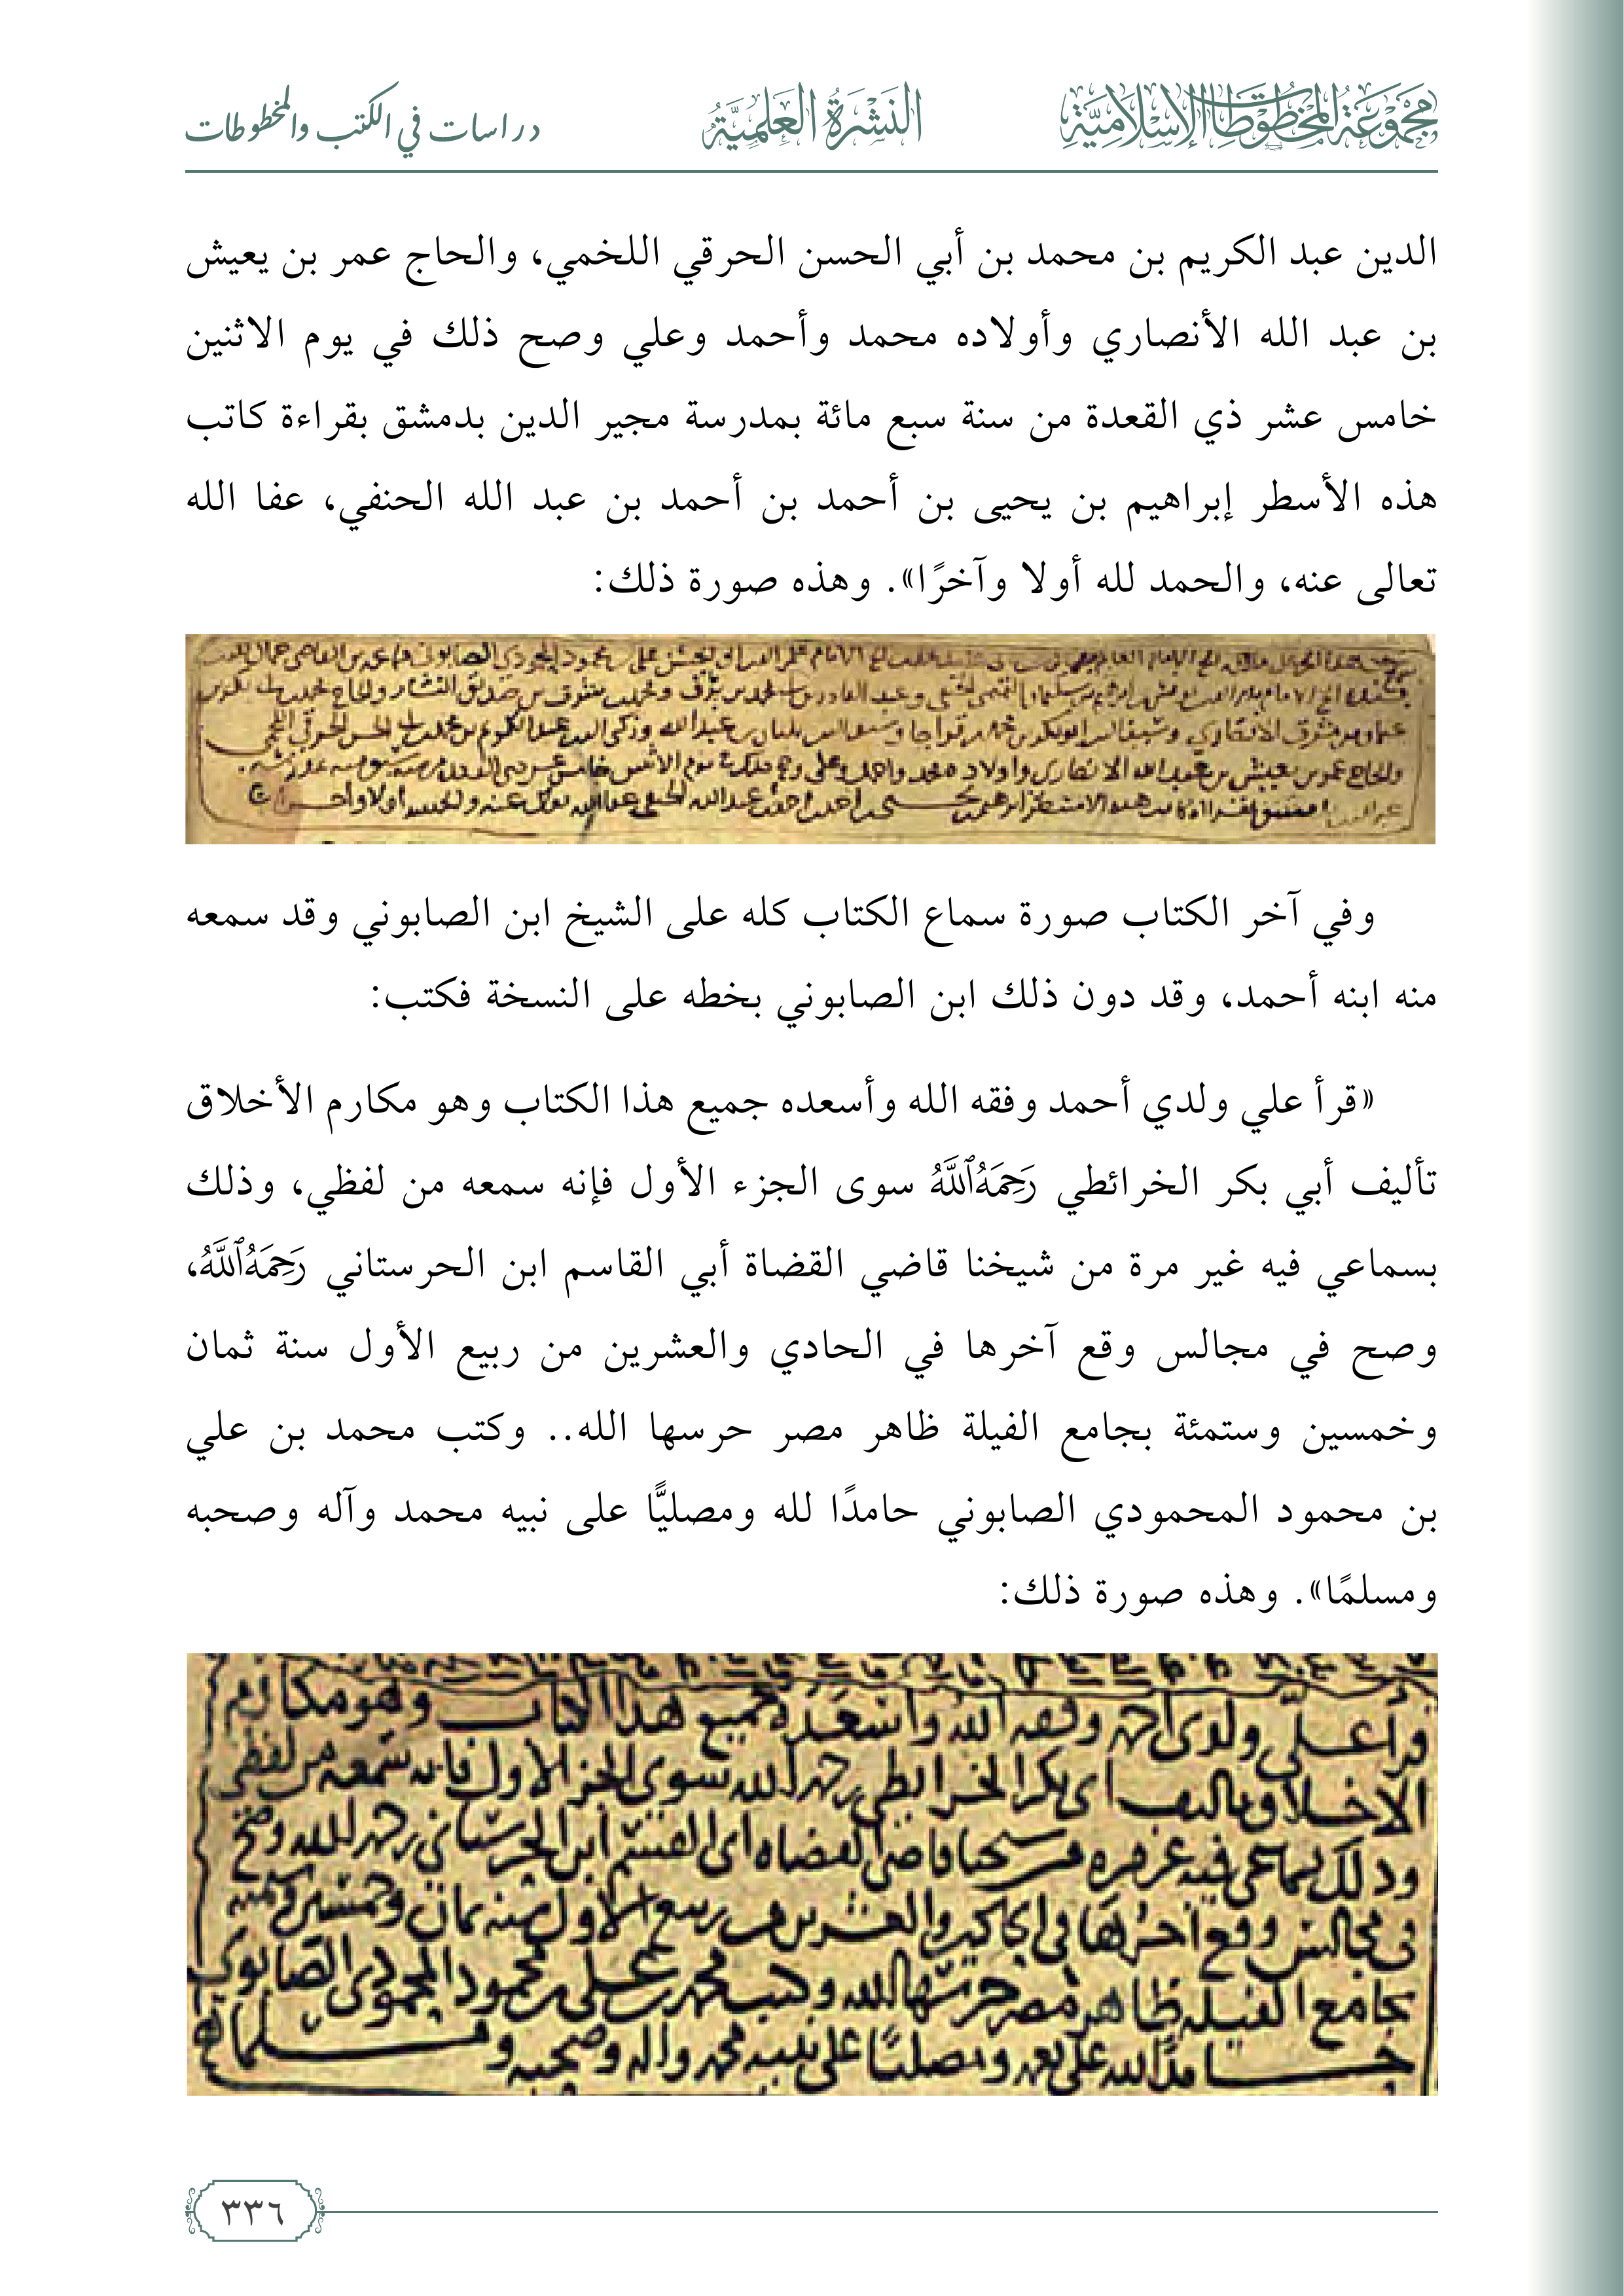 مجموعة المخطوطات الإسلامية
النَّشْرَةُ العِلْمِيَّةُ
دراسات في الكتب والمخطوطات
الدين عبد الكريم بن محمد بن أبي الحسن الحرقي اللخمي، والحاج عمر بن يعيش
بن عبد الله الأنصاري وأولاده محمد وأحمد وعلي وصح ذلك في يوم الاثنين
خامس عشر ذي القعدة من سنة سبع مائة بمدرسة مجير الدين بدمشق بقراءة كاتب
هذه الأسطر إبراهيم بن يحيى بن أحمد بن أحمد بن عبد الله الحنفي، عفا الله
تعالى عنه، والحمد لله أولا وآخرًا». وهذه صورة ذلك:
وفي آخر الكتاب صورة سماع الكتاب كله على الشيخ ابن الصابوني وقد سمعه
منه ابنه أحمد، وقد دون ذلك ابن الصابوني بخطه على النسخة فكتب:
«قرأ علي ولدي أحمد وفقه الله وأسعده جميع هذا الكتاب وهو مكارم الأخلاق
تأليف أبي بكر الخرائطي رَحِمَهُ ٱللَّهُ سوى الجزء الأول فإنه سمعه من لفظي، وذلك
بسماعي فيه غير مرة من شيخنا قاضي القضاة أبي القاسم ابن الحرستاني رَحِمَهُ ٱللَّهُ،
وصح في مجالس وقع آخرها في الحادي والعشرين من ربيع الأول سنة ثمان
وخمسين وستمئة بجامع الفيلة ظاهر مصر حرسها الله.. وكتب محمد بن علي
بن محمود المحمودي الصابوني حامدًا لله ومصليًّا على نبيه محمد وآله وصحبه
ومسلمًا». وهذه صورة ذلك:
قرأ على ولدى احمد وفقه الله واسعده جميع هذا الكتاب وهو مكارم
الاخلاق تاليف ابى بكر الخرايطي رحمه الله سوى الجز الاول فانه سمعه من لفظي
وذلك بسماعي فيه غير مره من شيخنا قاضى القضاه ابى القسم ابن الحرستاني رحمه الله وصح
فى مجالس ووقع اخرها فى الحادى والعشرين من ربيع الاول سنه ثمان وخمسين وستمئه
بجامع الفيله ظاهر مصر حرسها الله وكتب محمد بن على بن محمود المحمودى الصابونى
حامدًا لله على نعمه ومصليًا على نبيه محمد واله وصحبه ومسلما
٣٣٦